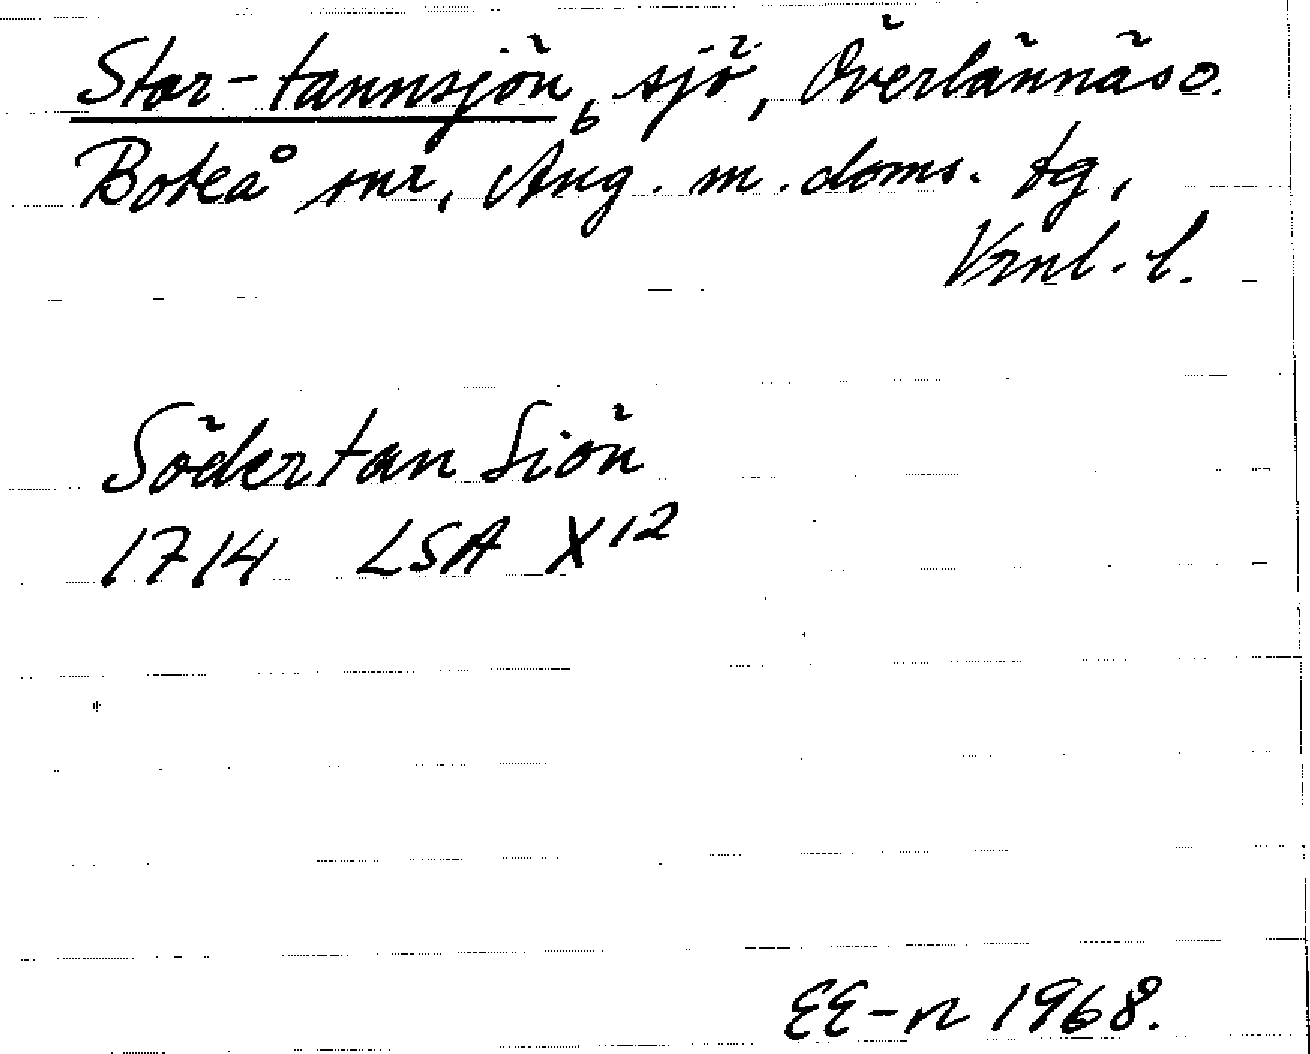 Stor-tannsjön, sjö, Överlännäs o.
Boteå snr, Ång. m. doms. tg,
Vrnl. l.
Södertan Siön
1714 LSA X12
EE-n 1968.